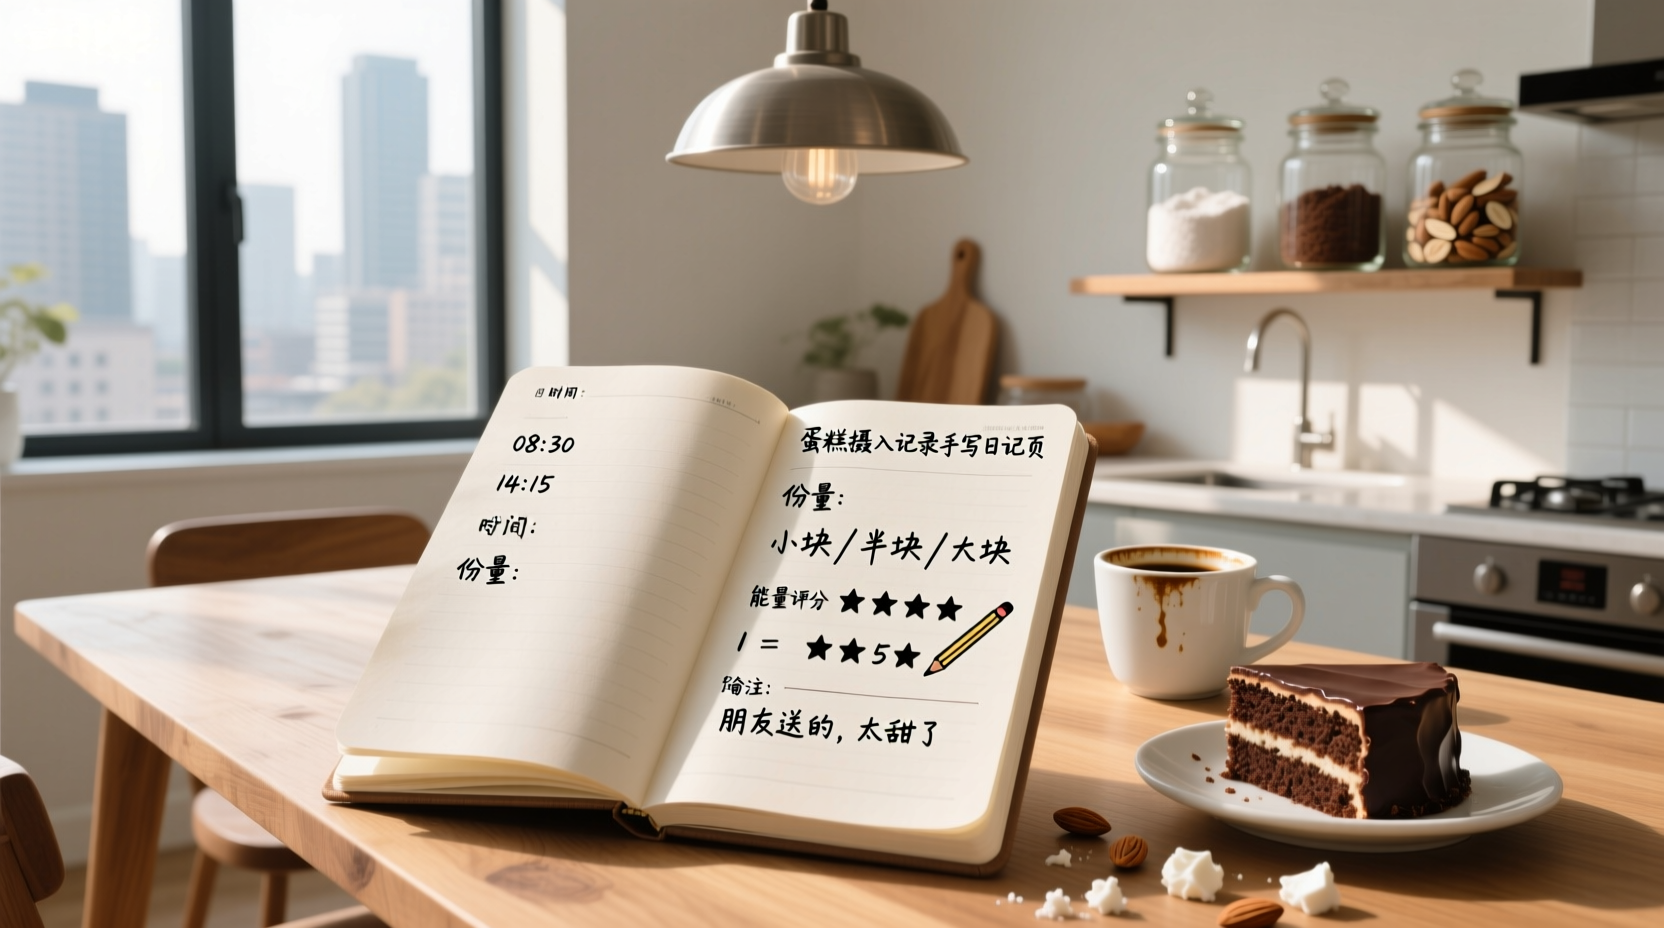 时间:
08:30
14:15
时间:
份量:
蛋糕摄入记录手写日记页
份量:
小块/半块/大块
能量评分 ★★★★
1 = ★★5★
注:
朋友送的, 太甜了